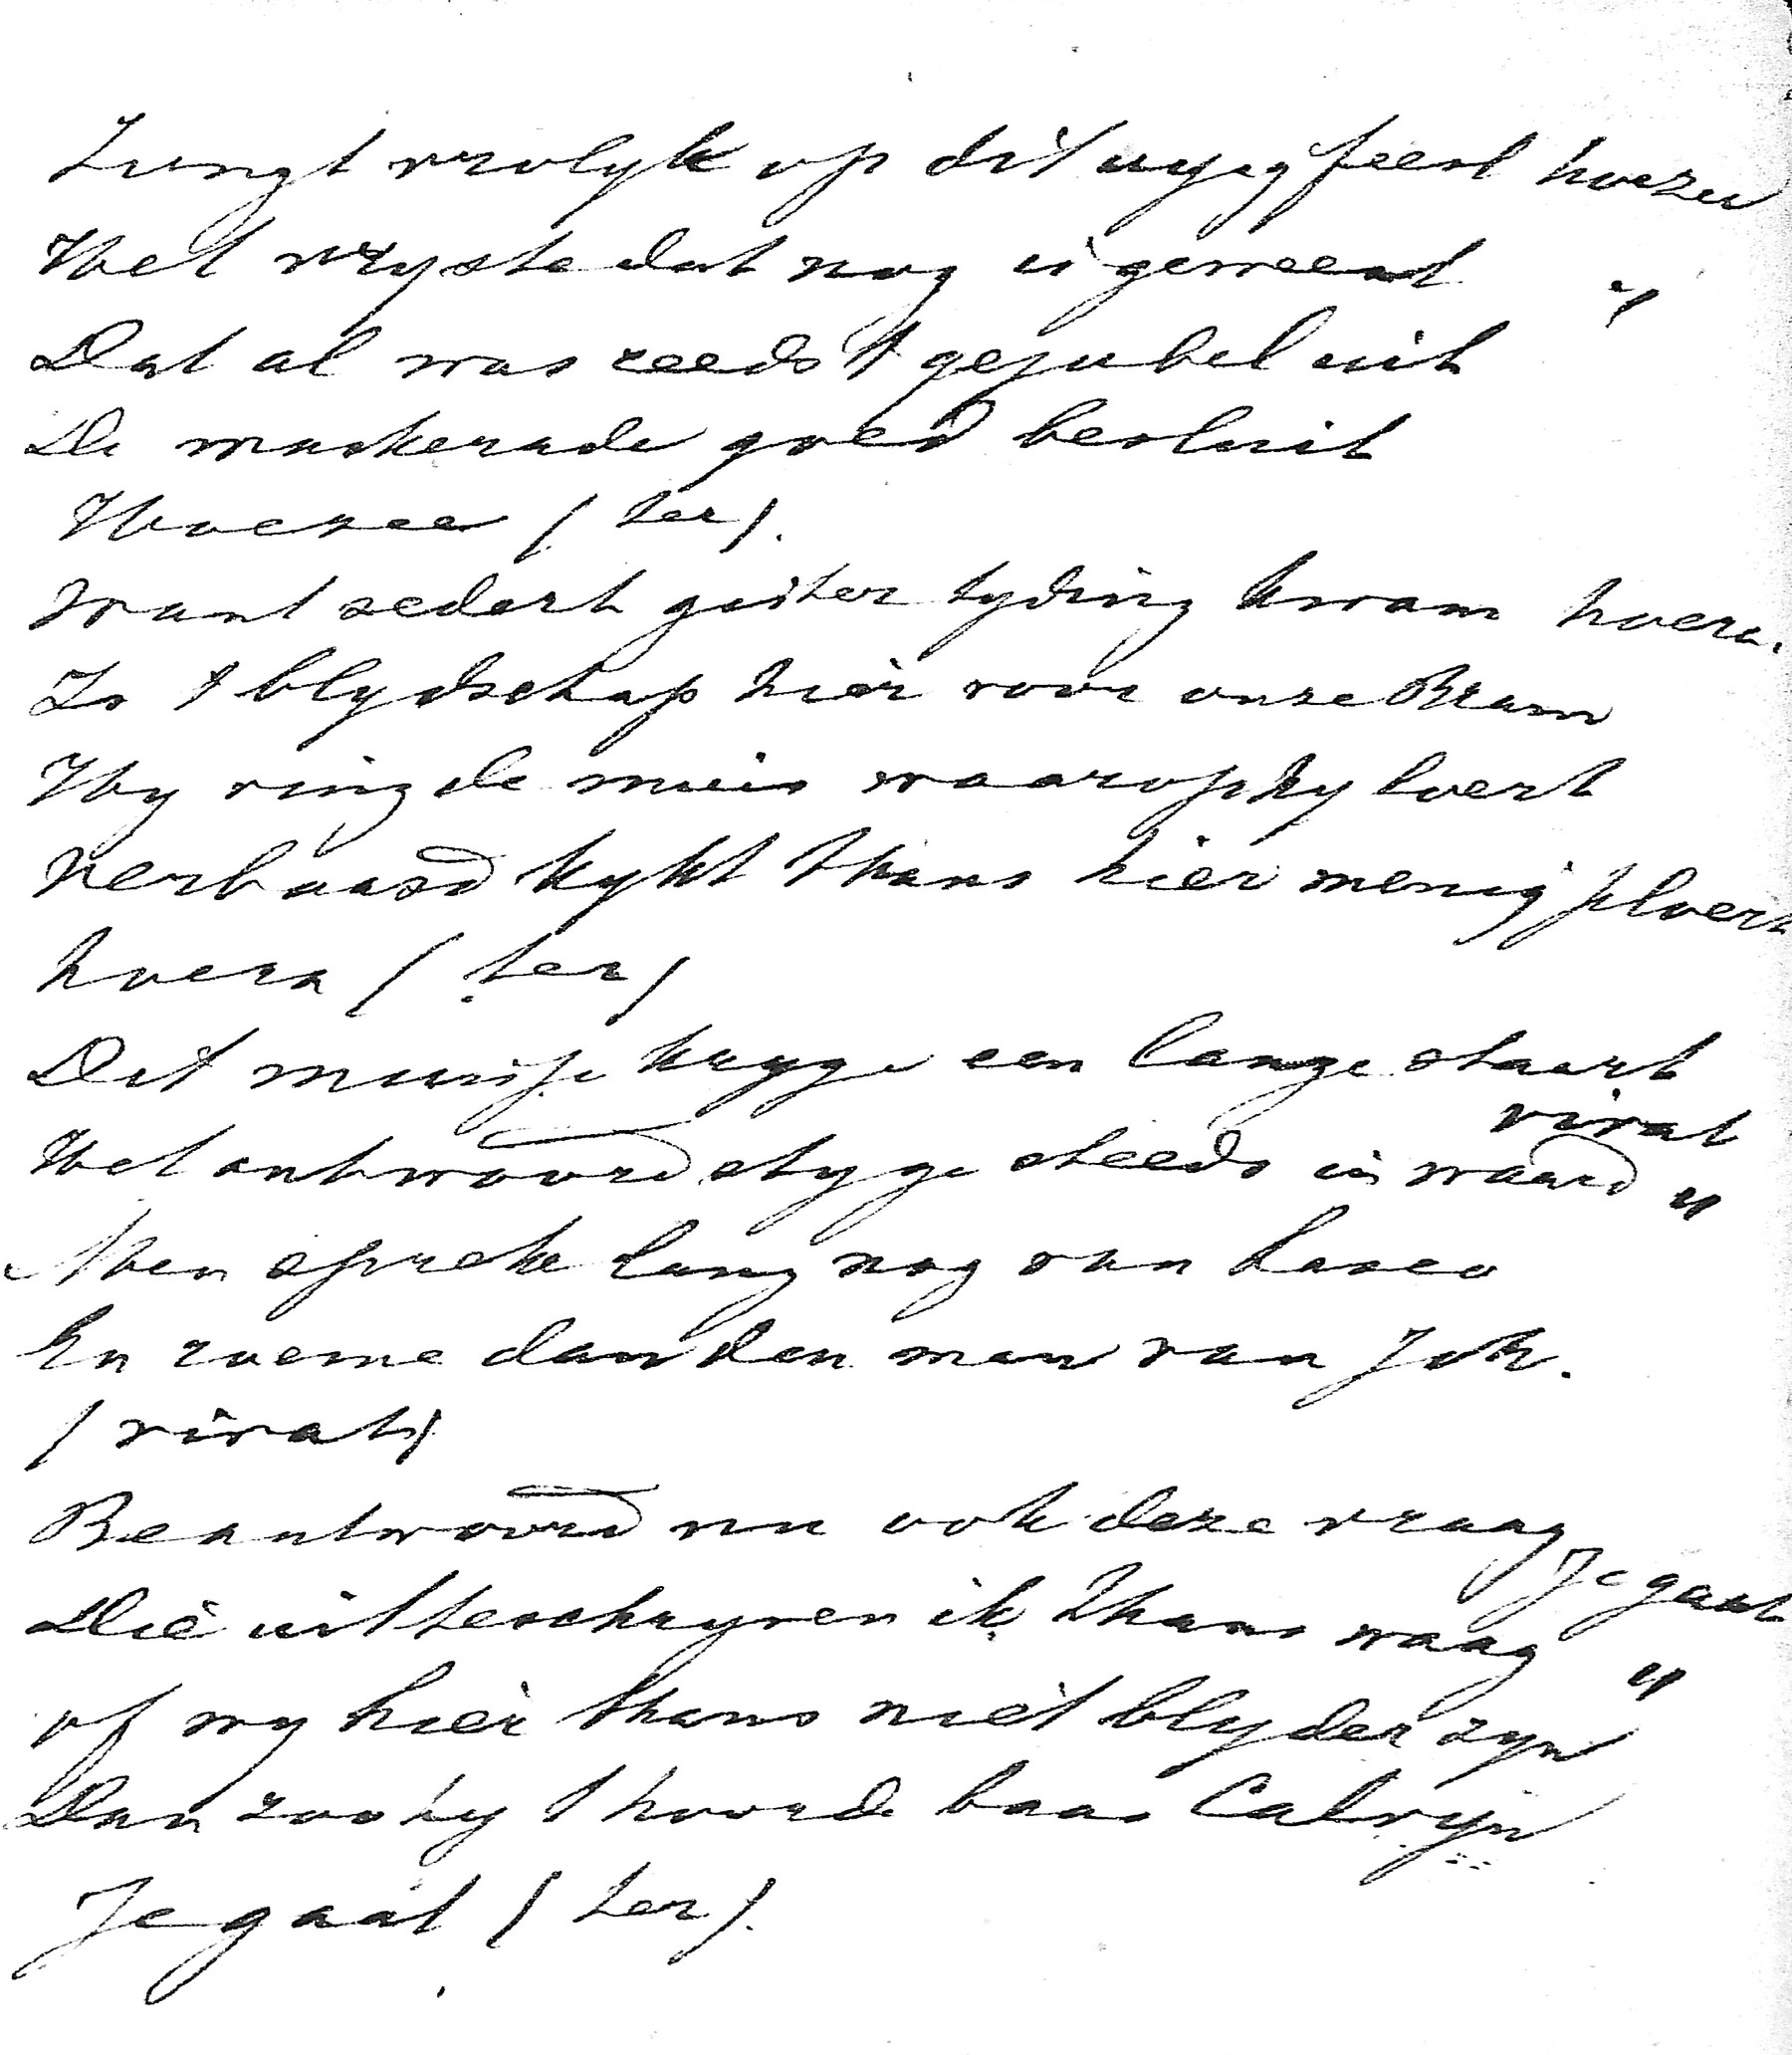 Zingt vrolyk op dit vryg feest hoezee
Het vryste dat nog is geweest "
Dat al was reeds 't gejubel uit
De maskerade goed besluit
Hoezee (ter).
Want sedert gister tyding kwam hoera.
Is 't blydschap hier voor onze Bram
Hy ving de muis waarop hy loert
Verbaasd kykt thans hier menig ploert
hoera (ter)
Dit muisje kryge een lange staart
vivat
Het antwoord styge steeds in waard "
Men spreke lang nog van
En roeme dan den man van Joh.
(vivat)
Beantwoord nu ook deze vraag
Je gaat
Die uit te schryven ik thans waag "
of wy hier thans niet blyder zyn
Dan zoo hy 't hoorde baas Calvyn
Je gaat (ter).